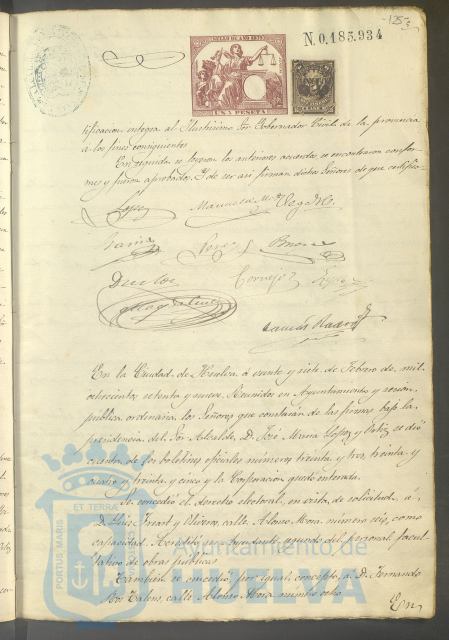 125
SELLO DE AÑO 1879
N. 0,185,934
UNA PESETA
tificacion integra al Ilustrisimo Sor Gobernador Civil de la provincia
á los fines consiguientes
Enseguida se leyeron los anteriores acuerdos, se encontraron confor-
mes y fueron aprobados. Y de ser asi firman dichos Señores de que certifico
Lopez
Garcia Perez
Duclos Cornejo
En la Ciudad de Huelva á veinte y siete de Febrero de mil
ochocientos setenta y nueve. Reunidos en Ayuntamiento y sesion
publica ordinaria los Señores que constarán de las firmas bajo la
presidencia del Sor Alcalde, D. José Maria Lopez y Ortiz, se dió
cuenta de los boletines oficiales números treinta y tres, treinta y
cuatro y treinta y cinco y la Corporacion quedó enterada.
Se concedió el derecho electoral, en vista de solicitud, á
D. Luis y Oliveros, calle Alonso Mora número seis, como
capacidad. Acreditó ser Ayudante segundo del personal facul-
tativo de obras públicas
Tambien se concedió por igual concepto, á D. Fernando
calle Alonso Mora número ocho
En
PORTUS MARIS ET TERRÆ
Ayuntamiento de
HUELVA